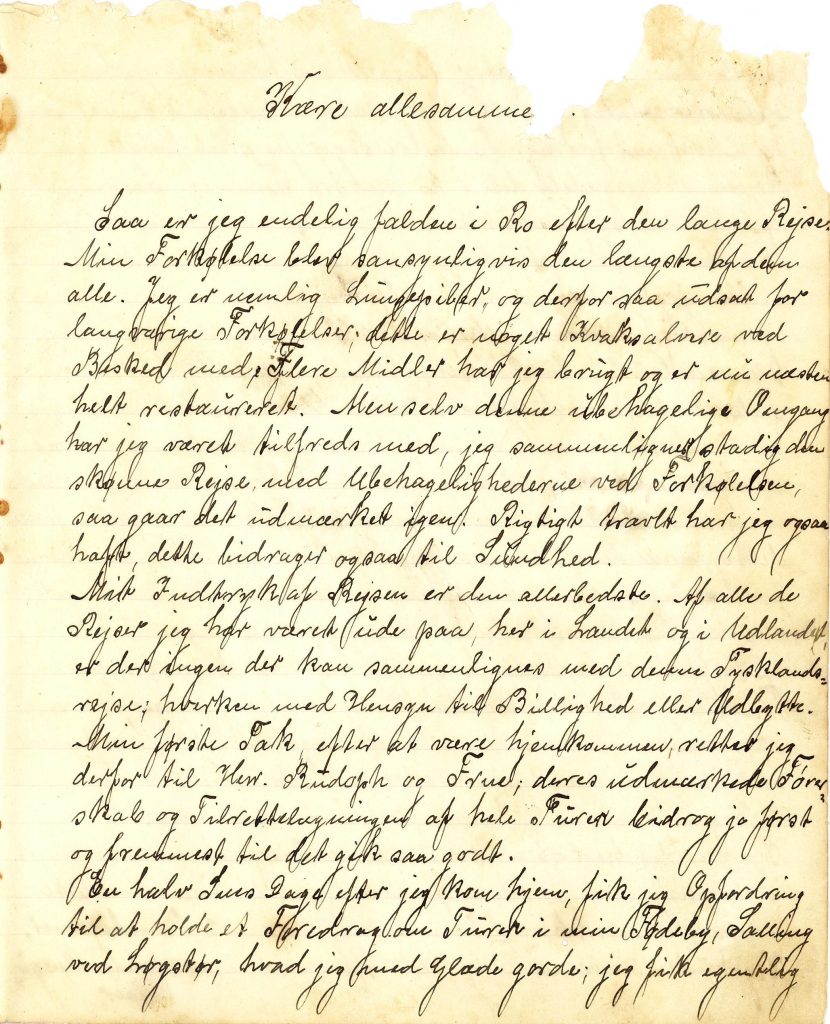 Kære allesamme.
Saa er jeg endelig falden i Ro efter den lange Rejse.
Min Forkølelse blev sansynligvis den længste af dem
alle. Jeg er nemlig Lungepiber, og derfor saa udsat for
langvarige Forkølelser; dette er noget Kvaksalvere ved
Besked med, Flere Midler har jeg brugt og er nu næsten
helt restaureret. Men selv denne ubehagelige Omgang
har jeg været tilfreds med, jeg sammenligner stadig den
skønne Rejse, med Ubehagelighederne ved Forkølelsen,
saa gaar det udmærket igen. Rigtigt travlt har jeg ogsaa
haft, dette bidrager ogsaa til Sundhed.
Mit Indtryk af Rejsen er den allerbedste. Af alle de
Rejser jeg har været ude paa, her i Landet og i Udlandet,
er der ingen der kan sammenlignes med denne Tysklands=
rejse; hverken med Hensyn til Billighed eller Udbytte.
Min første Tak, efter at være hjemkommen, retter jeg
derfor til Herr. Rudolph og Frue; deres udmærkede Fører=
skab og Tilrettelægningen af hele Turen bidrog jo først
og fremmest til det gik saa godt.
En halv Snes Dage efter jeg kom hjem, fik jeg Opfordring
til at holde et Foredrag om Turen i min Fødeby, Salling
ved Løgstør, hvad jeg med Glæde gorde; jeg fik egentlig